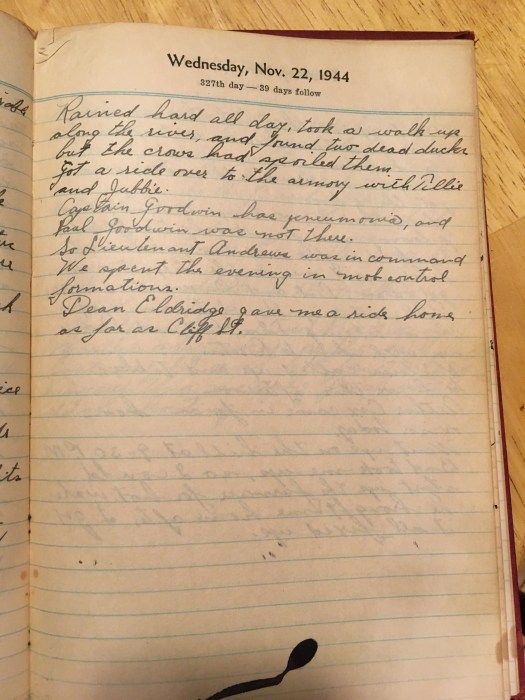 Wednesday, Nov. 22, 1944
327th day — 39 days follow
Rained hard all day, took a walk up
along the river, and found two dead ducks
but the crows had spoiled them.
Got a ride over to the armory with Tillie
and Jubbie.
Captain Goodwin has pneumonia, and
Paul Goodwin was not there.
So Lieutenant Andrews was in command
We spent the evening in mob control
formations.
Dean Eldridge gave me a ride home
as far as Cliff St.